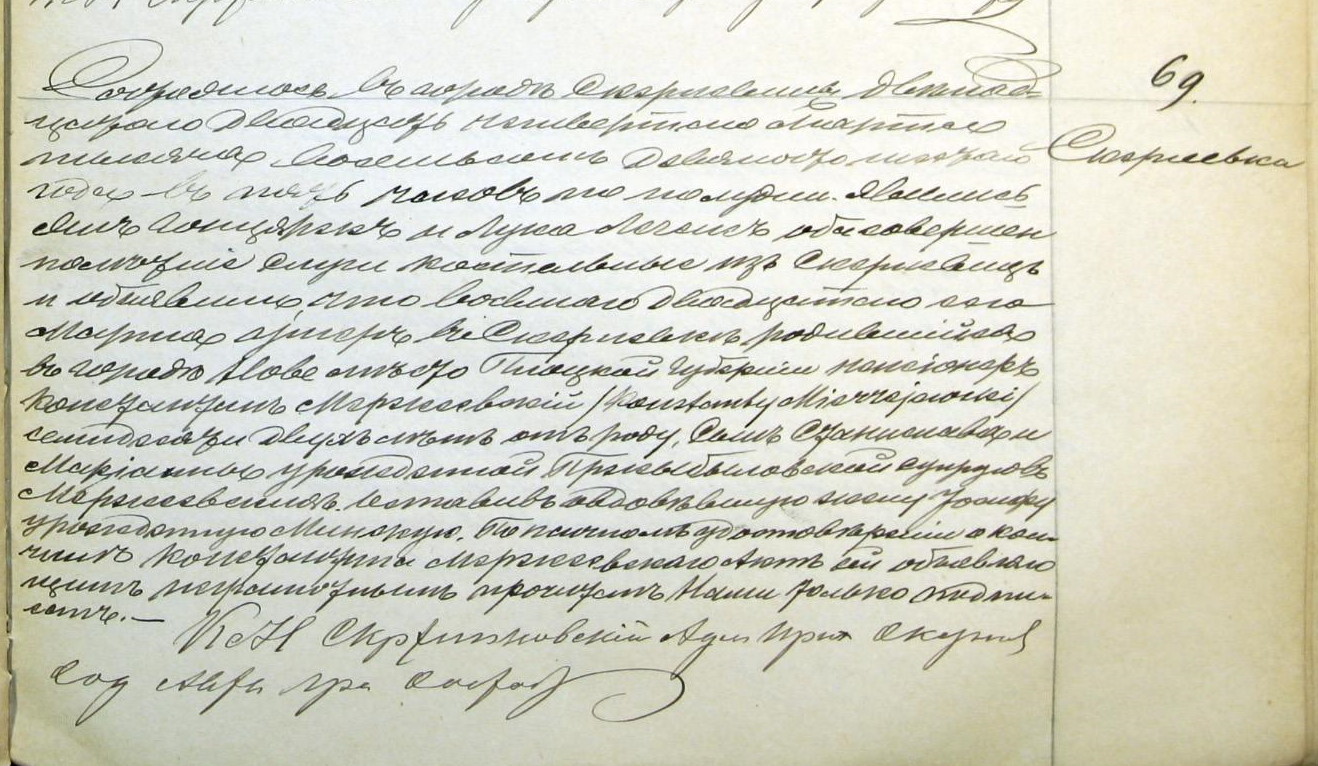 69.
Скерневка
Состоялось въ городѣ Скерневицы двѣнад-
цатаго двадцать четвертаго Марта
тысяча восемьсотъ девяносто шестаго
года въ пять часовъ по полудни. Явились
Янъ и Лука обасовершен
нолѣтніе слуги костельные изъ Скерневицъ
и объявили, что восьмаго двадцатаго сего
Марта умеръ въ Скерневкѣ родившійся
въ городѣ Нове мѣсто Плоцкой Губерніи пенсіонеръ
Константинъ Мержеевскій /Konstanty Mierzejewski/
семидесяти двухъ лѣтъ отъ роду, сынъ Станислава и
Маріанны урожденной Пржыбыловской супруговъ
Мержеевскихъ. Оставивъ овдовѣвшую жену Юзефу
урожденную По личномъ удостовѣреніи о кон-
чинѣ Константина Мержеевскаго Актъ сей объявляю
щимъ неграмотнымъ прочитанъ Нами только подпи-
санъ.—